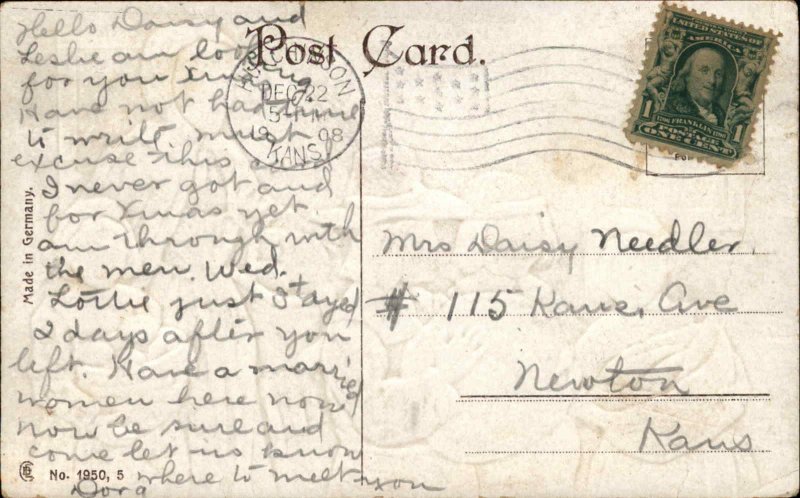 Post Card.
HUTCHINSON
DEC 22
5
1908
KANS
1706 FRANKLIN 1790
UNITED STATES OF AMERICA
1 POSTAGE 1
ONE CENT
Hello Daisy and
Leslie am look
for you Xmas
Have not had time
to write must
excuse this card
I never got and
for Xmas yet
am through with
the men. Wed.
Lottie just stayed
2 days after you
left. Have a married
women here now
now be sure and
come let us know
where to meet you
Dora
Mrs Daisy Needler
# 115 Kans. Ave
Newton
Kans
Made in Germany.
No. 1950, 5